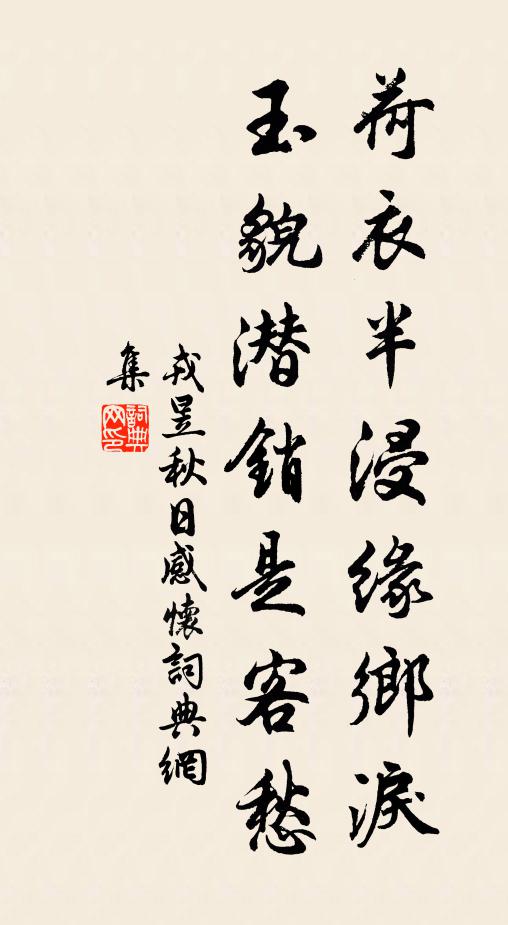 荷衣半浸缘鄉淚
玉貌潜銷是客愁
戎昱秋日感懷詞典網
集
詞典网印